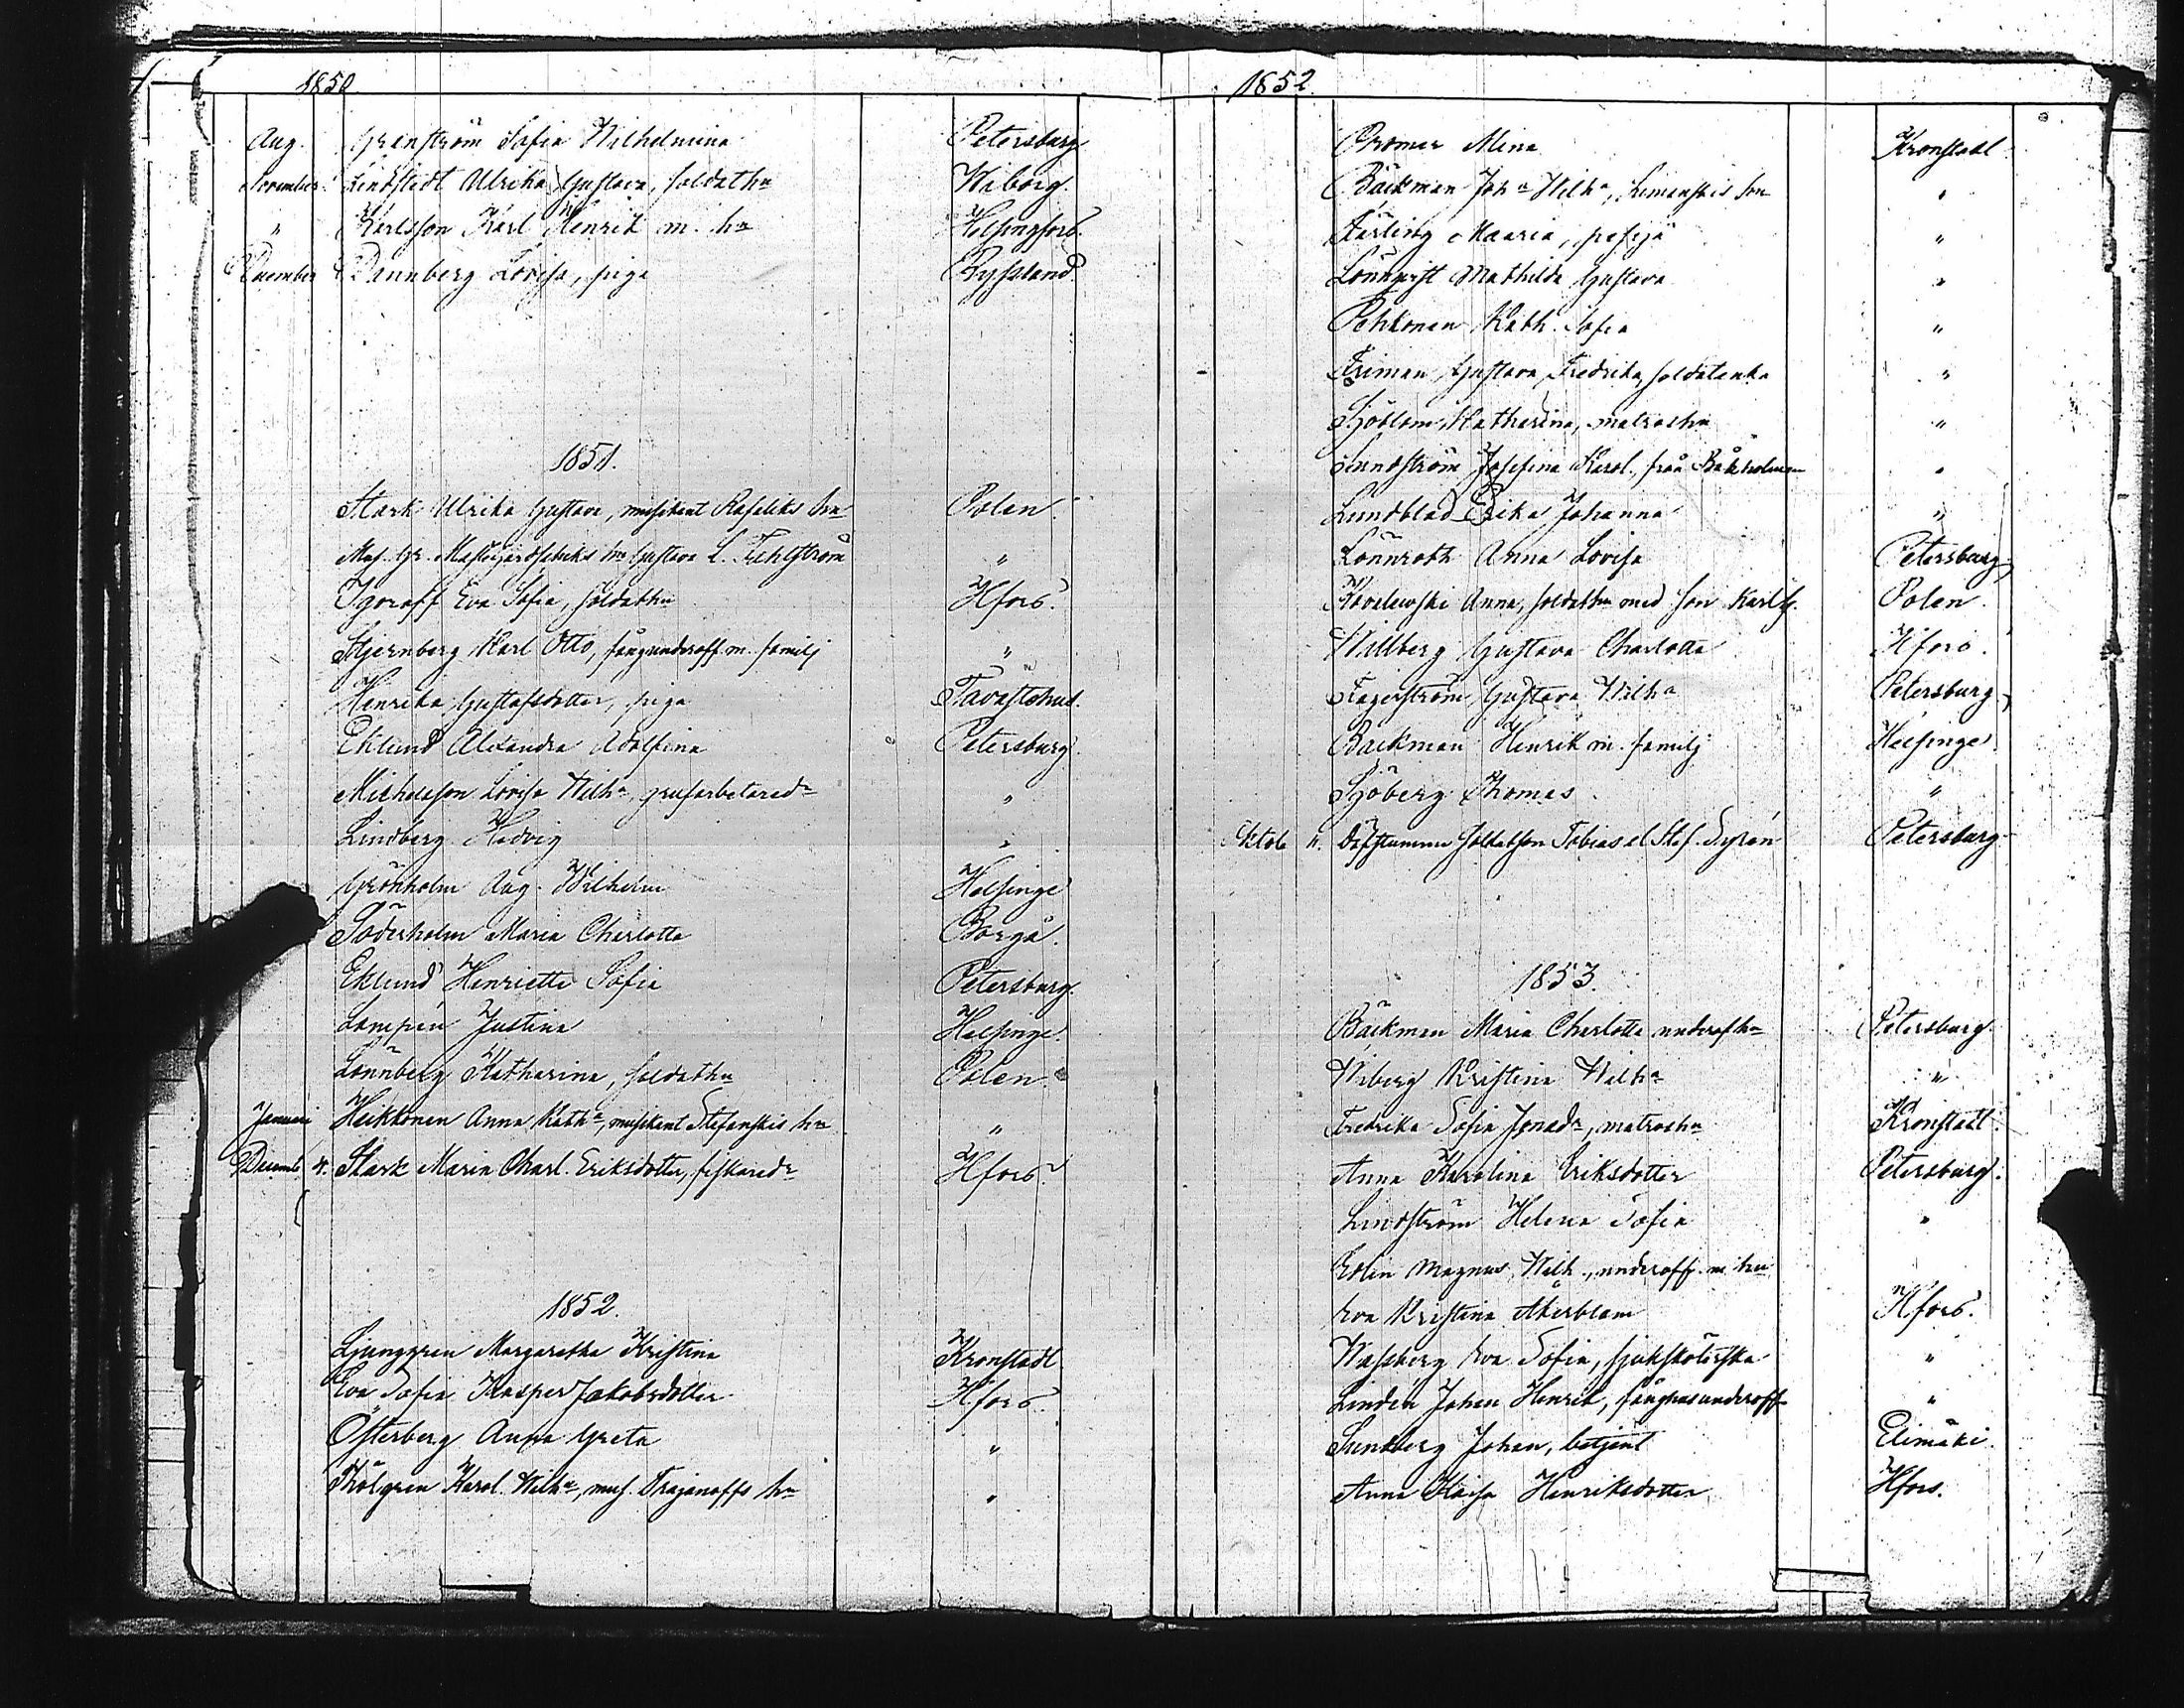 1850
Aug. Grenström Sofia Wilhelmina Petersburg
November Lindstedt Ulrika Gustava, soldathu Wiborg.
" Karlsson Karl Henrik m. hu Helsingfors.
December Dannberg Lovisa, piga Ryssland
1851.
Stark Ulrika Gustava, musikant Rafaliks hu Polen.
Gustava L. Fuhlström "
Igoroff Eva Sofia, soldathu Hfors.
Stjernberg Karl Otto, fångunderoff. m. familj "
Henrika Gustafsdotter, piga Tavastehus.
Eklund Alexandra Adolfina Petersburg
Michelsson Lovisa Wilh:a, grufarbetared:r "
Lindberg Hedvig "
Grönholm Aug. Wilhelm Helsinge
Söderholm Maria Charlotta Borgå.
Eklund Henrietta Sofia Petersburg.
Lampén Justina Helsinge.
Lönnberg Katharina, soldathu Polen.
Januari Heikkonen Anna Kath:a, musikant Stefanskis hu "
Decemb. 4. Stark Maria Charl. Eriksdotter, fiskared:r Hfors.
1852.
Ljunggren Margaretha Kristina Kronstadt
Eva Sofia Kasper Jakobsdotter Hfors.
Österberg Anna Greta "
Thölgren Karol. Wilh:a, mus. Trajanoffs hu "
1852.
Promer Mina Kronstadt
Bäckman Joh:a Wilh:a, Simanskis son "
Färling Maaria, "
Lönnqvist Mathilda Gustava "
Pehkonen Kath. Sofia "
Friman Gustava Fredrika, soldatenka "
Sjöblom Katharina, matroshu "
Sundström Josefina Karol. från Båkholmen "
Lundblad Erika Johanna "
Lönnroth Anna Lovisa Petersburg
Kovalewski Anna, soldathu med son Karl G. Polen.
Willberg Gustava Charlotta Hfors.
Fagerström Gustava Wilh:a Petersburg
Backman Henrik m. familj Helsinge
Sjöberg Thomas "
Oktob. 11. soldatson Tobias el Stef. Syrén Petersburg
1853.
Bäckman Maria Charlotta underofhu Petersburg.
Wiberg Kristina Wilh:a "
Fredrika Sofia Jonad:r, matroshu Kronstadt.
Anna Karolina Eriksdotter Petersburg.
Lindström Helena Sofia "
Magnus Wilh., underoff. m. hu
Eva Kristina Åkerblom Hfors.
Wassberg Eva Sofia, sjuksköterska "
Lindén Johan Henrik, fångnasunderoff "
Sundberg Johan, betjent Elimäki
Anna Kaisa Henriksdotter Hfors.